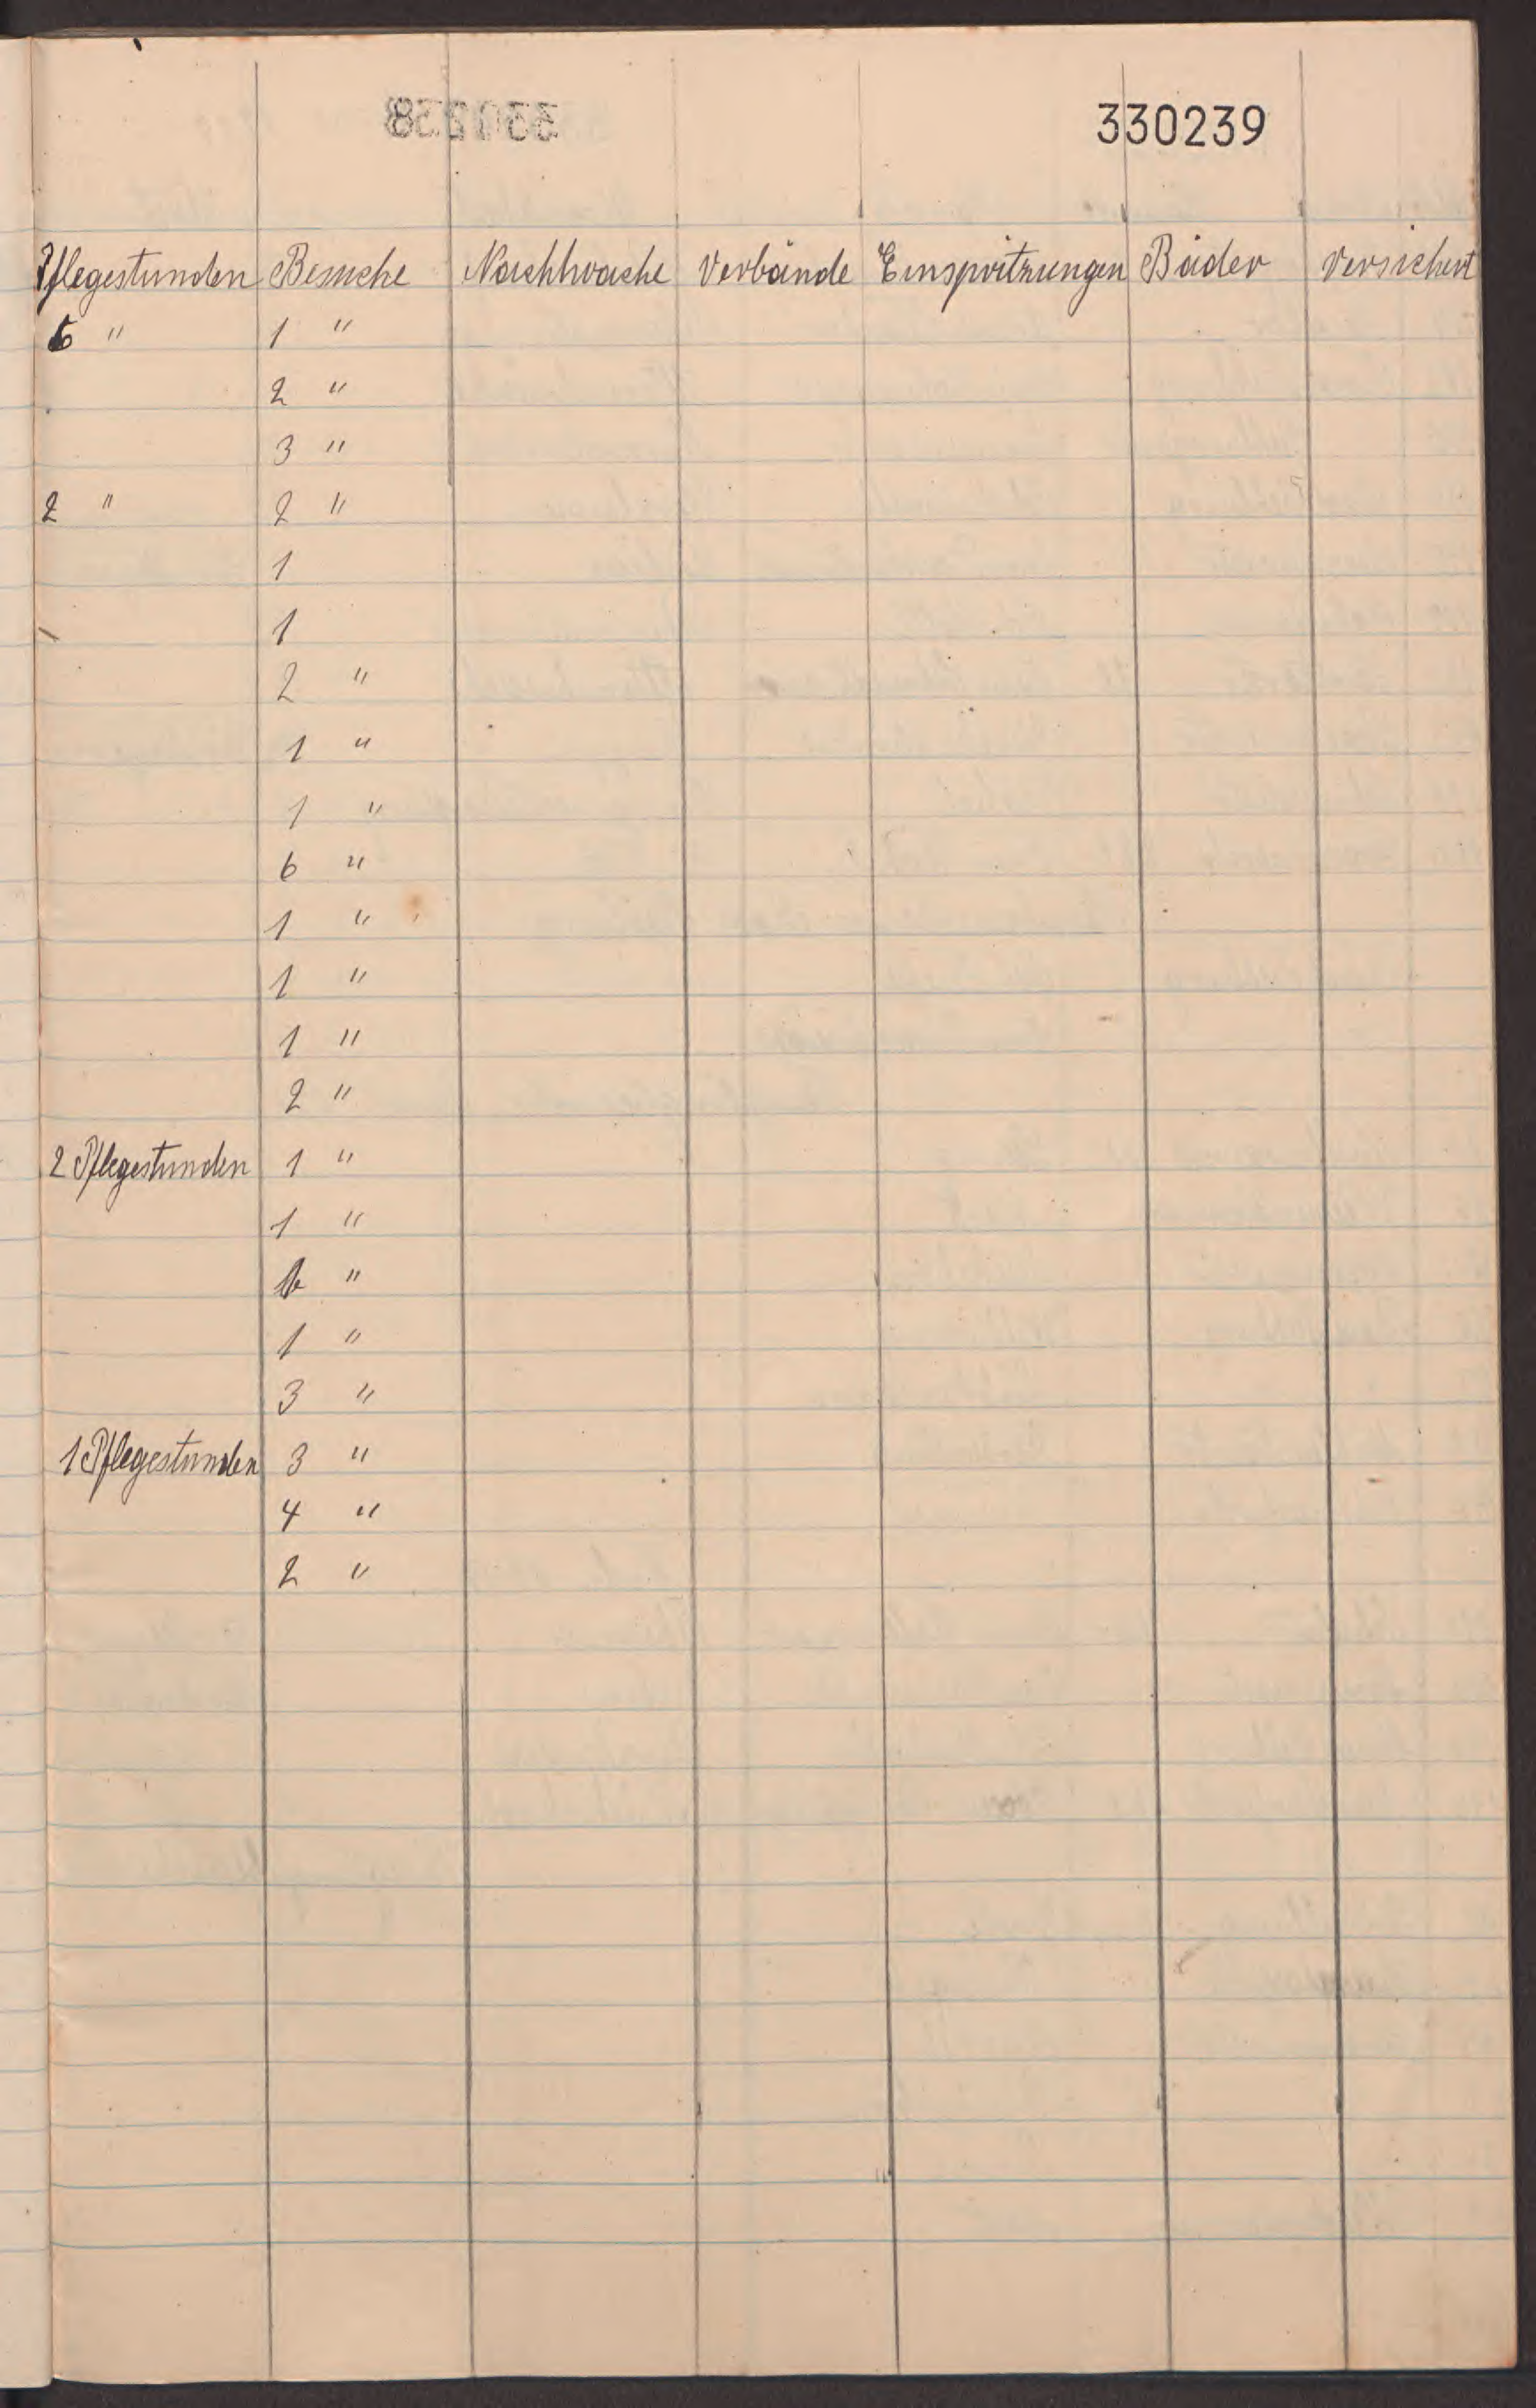 330239
Pflegestunden Besuche Nachtwache Verbände Einspritzungen Bäder Versichert
6 " 1 "
2 "
3 "
2 " 2 "
1
1
2 "
1 "
1 "
6 "
1 "
1 "
1 "
2 "
2 Pflegestunden 1 "
1 "
"
1 "
3 "
1 Pflegestunden 3 "
4 "
2 "